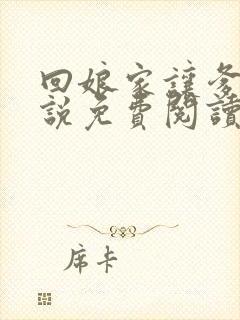 回娘家讓爹
說免費閱讀
席卡